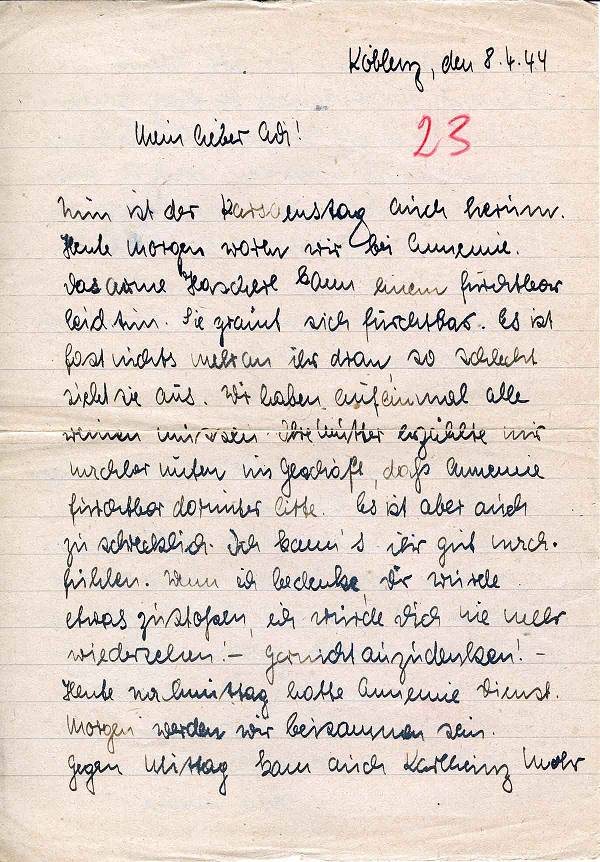 Koblenz, den 8.4.44
Mein lieber Adi!
23
Nun ist der Karsamstag auch herum.
Heute Morgen waren wir bei Annemie.
Das arme Hascherl kann einem furchtbar
leid tun. Sie grämt sich furchtbar. Es ist
fast nichts mehr an ihr dran so schlecht
sieht sie aus. Wir haben auf einmal alle
weinen müssen. Ihre Mutter erzählte mir
nachher unten im Geschäft, daß Annemie
furchtbar darunter litte. Es ist aber auch
zu schrecklich. Ich kann's ihr gut nach-
fühlen. Wenn ich bedenke Dir würde
etwas zustoßen, ich würde Dich nie mehr
wiedersehen! - garnicht auzudenken! -
Heute nachmittag hatte Annemie Dienst.
Morgen werden wir beisammen sein.
Gegen Mittag kam auch Karlheinz Mohr